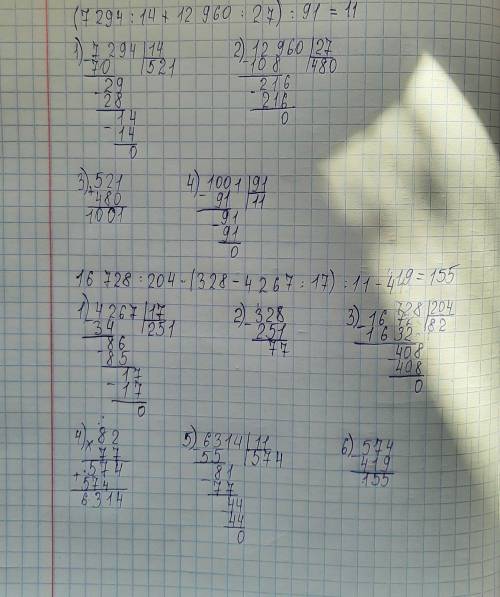 (7 294 : 14 + 12 960 : 27) : 91 = 11
1) 7 294 | 14
- 70 | 521
29
- 28
14
- 14
0
2) 12 960 | 27
- 108 | 480
216
- 216
0
3) 521
+ 480
1001
4) 1001 | 91
- 91 | 11
91
- 91
0
16 728 : 204 · (328 - 4 267 : 17) : 11 - 419 = 155
1) 4 267 | 17
- 34 | 251
86
- 85
17
- 17
0
2) 328
- 251
77
3) 16 728 | 204
- 16 32 | 82
408
- 408
0
4) 82
× 77
574
+ 574
6314
5) 6314 | 11
- 55 | 574
81
- 77
44
- 44
0
6) 574
- 419
155